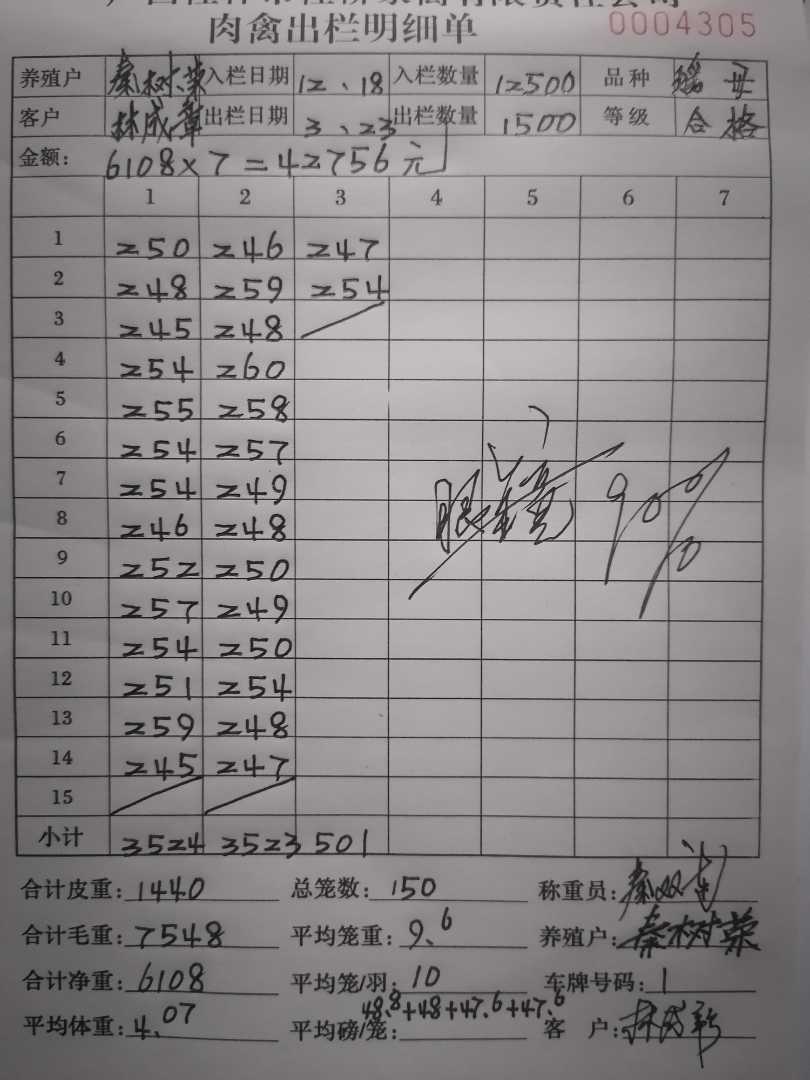 肉禽出栏明细单 0004305
养殖户 秦树荣 入栏日期 12、18 入栏数量 12500 品种 瑶母
客户 林成章 出栏日期 3、23 出栏数量 1500 等级 合格
金额: 6108×7=42756元
1 2 3 4 5 6 7
1 250 246 247
2 248 259 254
3 245 248
4 254 260
5 255 258
6 254 257
7 254 249
8 246 248
9 252 250
10 257 249
11 254 250
12 251 254
13 259 248
14 245 247
15
90%
小计 3524 3523 501
合计皮重: 1440 总笼数: 150 称重员:
合计毛重: 7548 平均笼重: 9.6 养殖户: 秦树荣
合计净重: 6108 平均笼/羽: 10 车牌号码: 1
平均体重: 4.07 平均磅/笼: 48.8+48+47.6+47.6 客户: